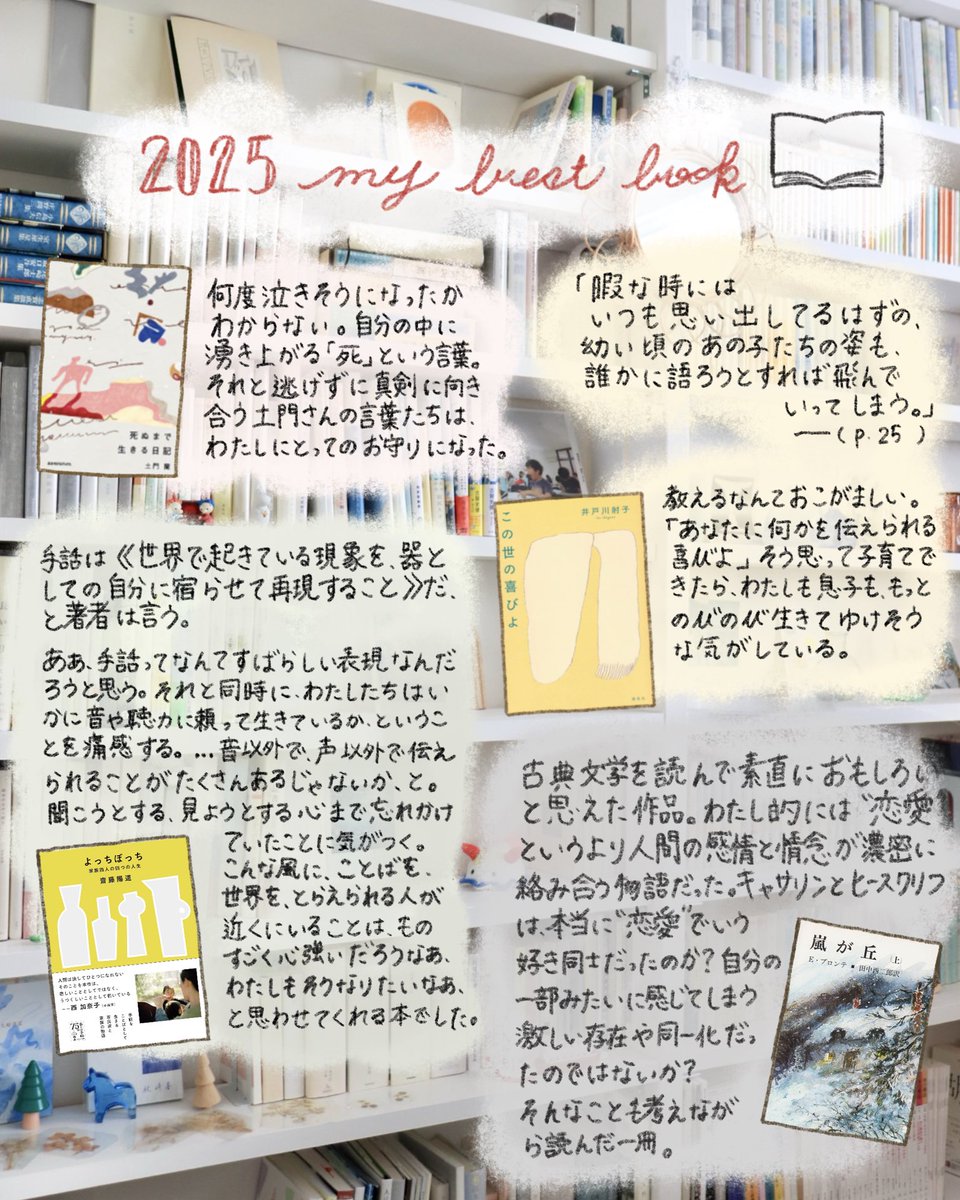 2025 my best book
何度泣きそうになったか
わからない。自分の中に
湧き上がる「死」という言葉。
それと逃げずに真剣に向き
合う土門さんの言葉たちは、
わたしにとってのお守りになった。
死ぬまで
生きる日記
土門 蘭
「暇な時には
いつも思い出してるはずの、
幼い頃のあの子たちの姿も、
誰かに語ろうとすれば飛んで
いってしまう。」
―(p.25 )
教えるなんておこがましい。
「あなたに何かを伝えられる
喜びよ」そう思って子育てで
きたら、わたしも息子も、もっと
のびのび生きてゆけそう
な気がしている。
井戸川射子
この世の喜びよ
手話は《世界で起きている現象を、器と
しての自分に宿らせて再現すること》だ、
と著者は言う。
ああ、手話ってなんてすばらしい表現なんだ
ろうと思う。それと同時に、わたしたちはい
かに音や聴力に頼って生きているか、というこ
とを痛感する。…音以外で、声以外で伝え
られることがたくさんあるじゃないか、と。
聞こうとする、見ようとする心まで、忘れかけ
ていたことに気がつく。
こんな風に、ことばを、
世界を、とらえられる人が
近くにいることは、もの
すごく心強いだろうなあ、
わたしもそうなりたいなあ、
と思わせてくれる本でした。
よっちぼっち
家族四人の四つの人生
齋藤陽道
人間は決してひとつになれない
そのことを本作は、
悲しいこととしてではなく、
うつくしいこととして説いている
――西 加奈子
古典文学を読んで素直におもしろい
と思えた作品。わたし的には“恋愛”
というより人間の感情と情念が濃密に
絡み合う物語だった。キャサリンとヒースクリフ
は、本当に“恋愛”でいう
好き同士だったのか？自分の
一部みたいに感じてしまう
激しい存在や同一化だっ
たのではないか？
そんなことも考えなが
ら読んだ一冊。
嵐が丘 (上)
E・ブロンテ 田中西二郎訳